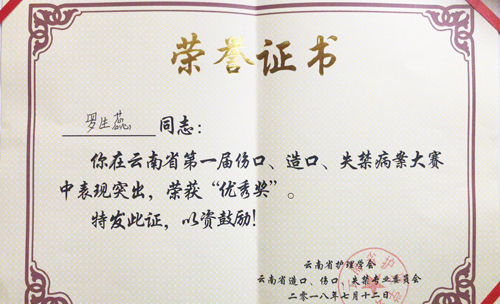 荣誉证书
罗生蕊 同志：
你在云南省第一届伤口、造口、失禁病案大赛
中表现突出，荣获“优秀奖”。
特发此证，以资鼓励！
云南省护理学会
云南省造口、伤口、失禁专业委员会
二零一八年七月十二日